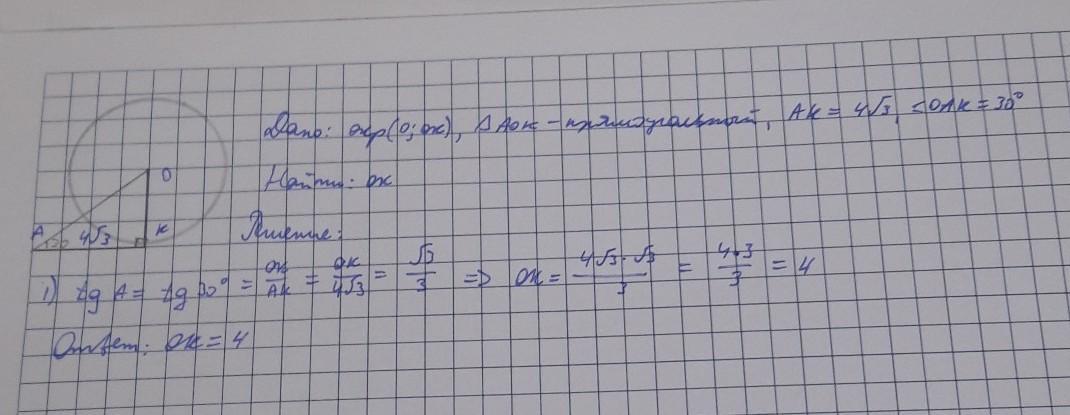 Дано: окр(O; OK), △AOK - прямоугольный, AK = 4√3, ∠OAK = 30°
Найти: OK
O
A 30° 4√3 K
Решение:
1) tg A = tg 30° = OK/AK = OK/4√3 = √3/3 => OK = 4√3·√3/3 = 4·3/3 = 4
Ответ: OK = 4